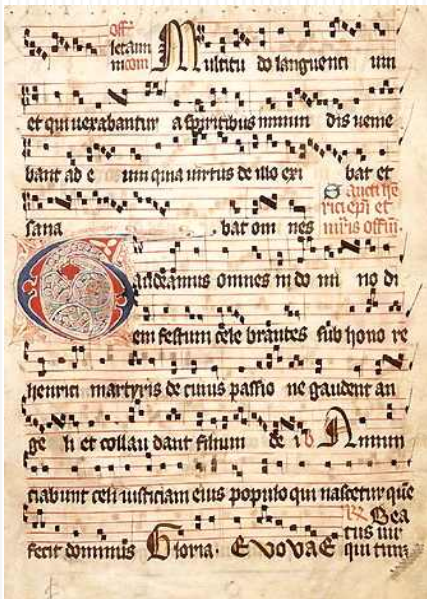 off'
letamini
in com Multitu do languenti um
et qui uexabantur a spiritibus inmun dis uenie
bant ad e um quia uirtus de illo exi bat et
sana bat om nes
Sancti he
rici epi et
mris offm
Gaudeamus omnes in do mi no di
em festum cele brantes sub hono re
henrici martyris de cuius passio ne gaudent an
ge li et collau dant filium de i Annun
ciabunt celi iusticiam eius populo qui nascetur que
fecit dominus Gloria. Evovae
Bea
tus uir
qui timz